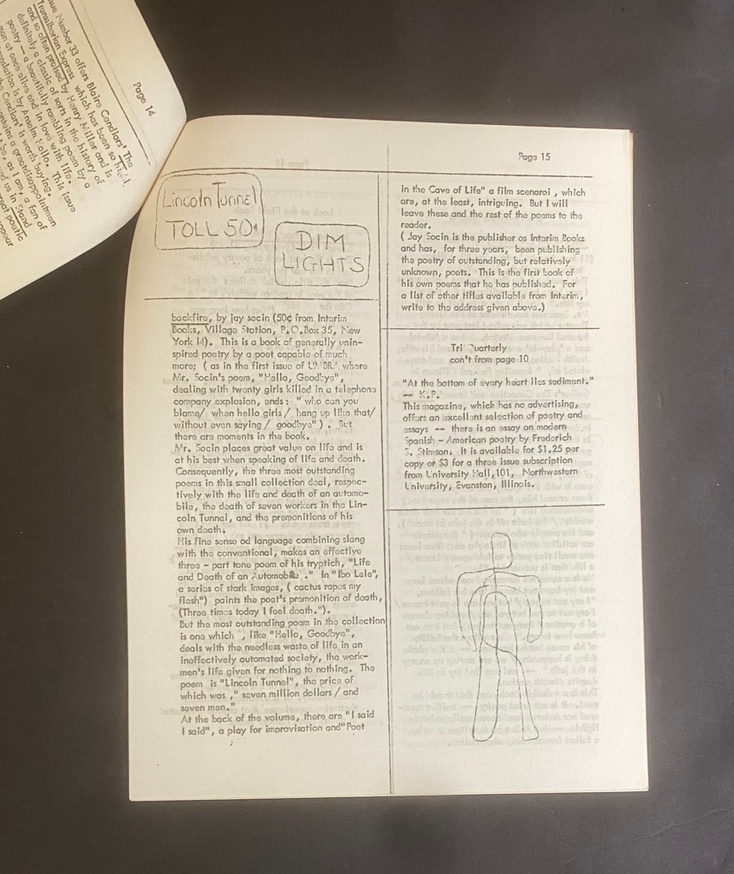 Page 14
Number 33 offers Blaire Cendlars' The
Transiberian Express which has been so
and so often praised by Henry Miller and is
definitely a classic of sorts in the history of
poetry -- a beautifully rambling poem by a
man at once alive and in love with life.
translation is by Anselm Hollo. This issue
Cendlars' is worth buying.
a grand disappointmen
as I am, a fan of
us in Stand
poetic
Page 15
Lincoln Tunnel
TOLL 50¢
DIM
LIGHTS
backfire, by jay socin (50¢ from Interim
Books, Village Station, P.O.Box 35, New
York 14). This is a book of generally unin-
spired poetry by a poet capable of much
more; ( as in the first issue of UMBRA where
Mr. Socin's poem, "Hello, Goodbye",
dealing with twenty girls killed in a telephone
company explosion, ends: " who can you
blame/ when hello girls / hang up like that/
without even saying / goodbye" ) . But
there are moments in the book.
Mr. Socin places great value on life and is
at his best when speaking of life and death.
Consequently, the three most outstanding
poems in this small collection deal, respec-
tively with the life and death of an automo-
bile, the death of seven workers in the Lin-
coln Tunnel, and the premonitions of his
own death.
His fine sense od language combining slang
with the conventional, makes an effective
three - part tone poem of his tryptich, "Life
and Death of an Automobile ." In "Ibo Lele",
a series of stark images, ( cactus rapes my
flesh") paints the poet's premonition of death,
(Three times today I feel death.").
But the most outstanding poem in the collection
is one which , like "Hello, Goodbye",
deals with the needless waste of life in an
ineffectively automated society, the work-
men's life given for nothing to nothing. The
poem is "Lincoln Tunnel", the price of
which was ," seven million dollars / and
seven men."
At the back of the volume, there are "I said
I said", a play for improvisation and "Poet
in the Cave of Life" a film scenaroi , which
are, at the least, intriguing. But I will
leave these and the rest of the poems to the
reader.
( Jay Socin is the publisher os Interim Books
and has, for three years, been publishing
the poetry of outstanding, but relatively
unknown, poets. This is the first book of
his own poems that he has published. For
a list of other titles available from Interim,
write to the address given above.)
Tri Quarterly
con't from page 10
"At the bottom of every heart lies sediment."
-- K.P.
This magazine, which has no advertising,
offers an excellent selection of poetry and
essays -- there is an essay on modern
Spanish - American poetry by Frederick
S. Stimson. It is available for $1.25 per
copy or $3 for a three issue subscription
from University Hall,101, Northwestern
University, Evanston, Illinois.